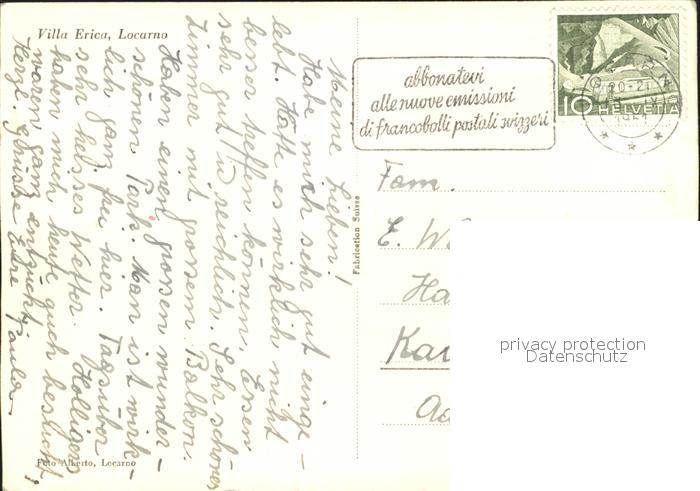 Villa Erica, Locarno
Meine Lieben!
Habe mich sehr gut einge-
lebt. Hätte es wirklich nicht
besser treffen können. Essen
sehr gut u reichlich. Sehr schönes
Zimmer mit grossem Balkon.
Haben einen grossen wunder-
schönen Park. Man ist wirk-
lich ganz frei hier. Tagsüber
sehr heisses Wetter. Holligers
haben mich heute auch besucht,
waren ganz entzückt.
Herzl. Grüsse Eure Paula
Foto Alberto, Locarno
Fabrication Suisse
abbonatevi
alle nuove emissioni
di francobolli postali svizzeri
10 HELVETIA
20-21
1951
Fam.
E. W
Ha
Kau
privacy protection
Datenschutz